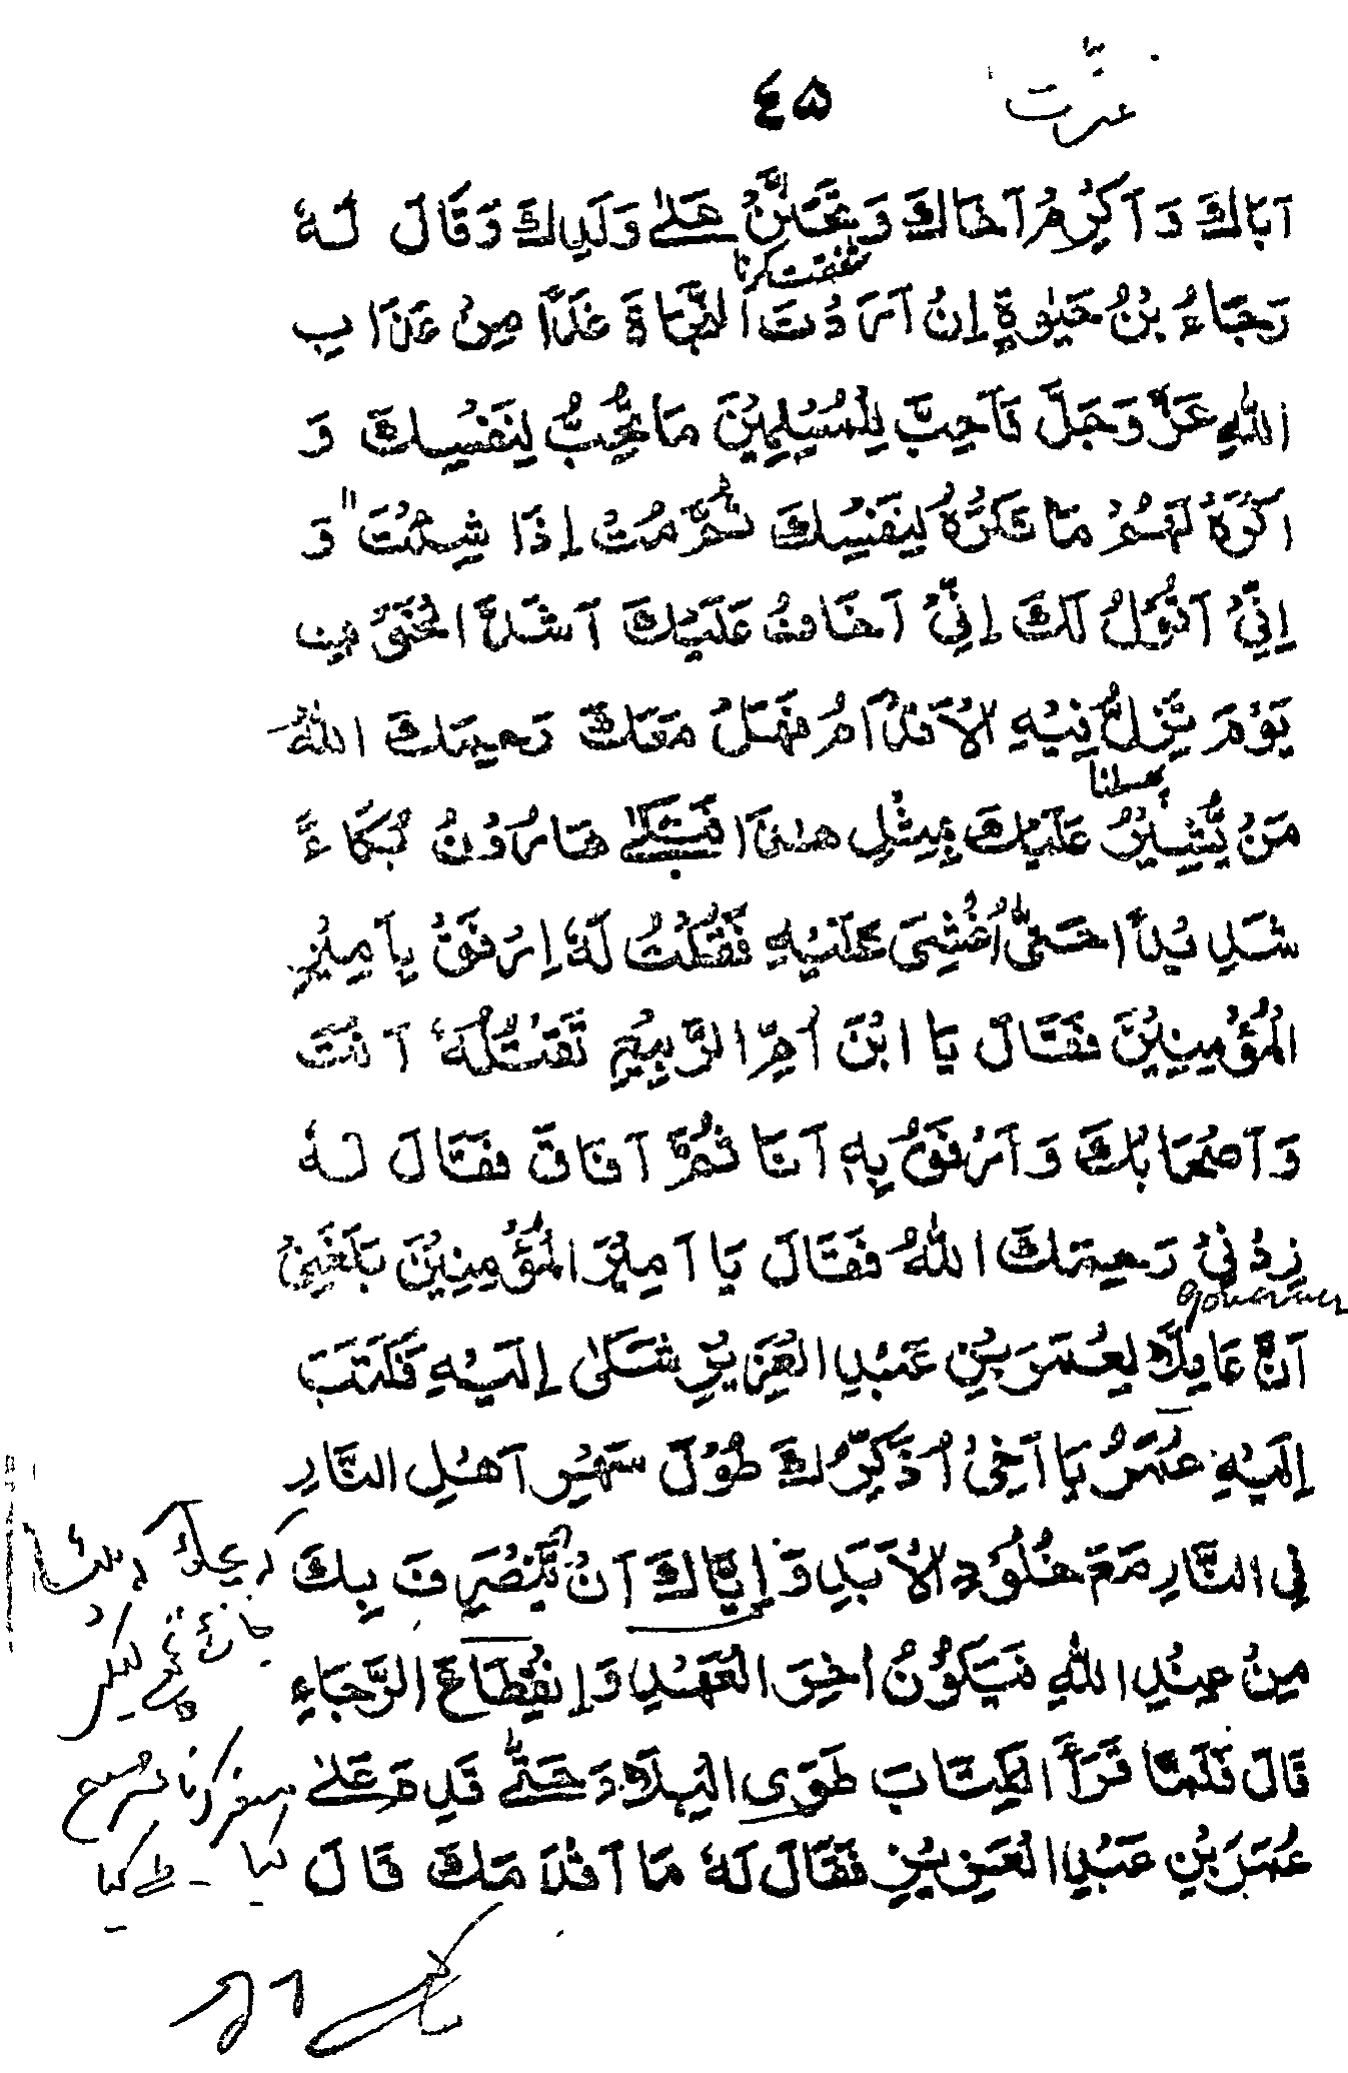 ٤۵
عزت
اَبَاكَ وَ اَكْرِمْ اَخَاكَ وَ تَحَنَّنْ عَلٰى وَلَدِكَ وَقَالَ لَهٗ
شفقت کرنا
رَجَاءُ بْنُ حَيٰوةٍ اِنْ اَرَدْتَ النَّجَاةَ غَدًا مِنْ عَذَابِ
اللهِ عَزَّ وَجَلَّ فَاَحِبَّ لِلْمُسْلِمِيْنَ مَا تُحِبُّ لِنَفْسِكَ وَ
اكْرَهْ لَهُمْ مَا تَكْرَهُ لِنَفْسِكَ ثُمَّ مُتْ اِذَا شِئْتَ" وَ
اِنِّيْ اَقُوْلُ لَكَ اِنِّيْ اَخَافُ عَلَيْكَ اَشَدَّ الْخَوْفِ
يَوْمَ تَزِلُّ فِيْهِ الْاَقْدَامُ فَهَلْ مَعَكَ رَحِمَكَ اللهُ
پھسلنا
مَنْ يُّشِيْرُ عَلَيْكَ بِمِثْلِ هٰذَا فَبَكٰى هَارُوْنُ بُكَاءً
شَدِيْدًا حَتّٰى اُغْشِيَ عَلَيْهِ فَقُلْتُ لَهٗ اِرْفَقْ بِاَمِيْرِ
الْمُؤْمِنِيْنَ فَقَالَ يَا ابْنَ اُمِّ الرَّبِيْعِ تَقْتُلُهٗ اَنْتَ
وَ اَصْحَابُكَ وَ اَرْفَقُ بِهٖ اَنَا ثُمَّ اَفَاقَ فَقَالَ لَهٗ
زِدْنِيْ رَحِمَكَ اللهُ فَقَالَ يَا اَمِيْرَ الْمُؤْمِنِيْنَ بَلَغَنِيْ
Governer
اَنَّ عَامِلًا لِعُمَرَ بْنِ عَبْدِ الْعَزِيْزِ شَكٰى اِلَيْهِ فَكَتَبَ
اِلَيْهِ عُمَرُ يَا اَخِيْ اُذَكِّرُكَ طُوْلَ سَهْرِ اَهْلِ النَّارِ
فِي النَّارِ مَعَ خُلُوْدِ الْاَبَدِ وَ اِيَّاكَ اَنْ يَّنْصَرِفَ بِكَ
مِنْ عِنْدِ اللهِ فَيَكُوْنُ اٰخِرَ الْعَهْدِ وَ اِنْقِطَاعَ الرَّجَاءِ
جائے تجھے لیکر
قَالَ فَلَمَّا قَرَأَ الْكِتَابَ طَوَى الْبِلَادَ حَتّٰى قَدِمَ عَلٰى
سفر کرنا شروع
عُمَرَ بْنِ عَبْدِ الْعَزِيْزِ فَقَالَ لَهٗ مَا اَقْدَمَكَ قَالَ
کیا - طے کیا